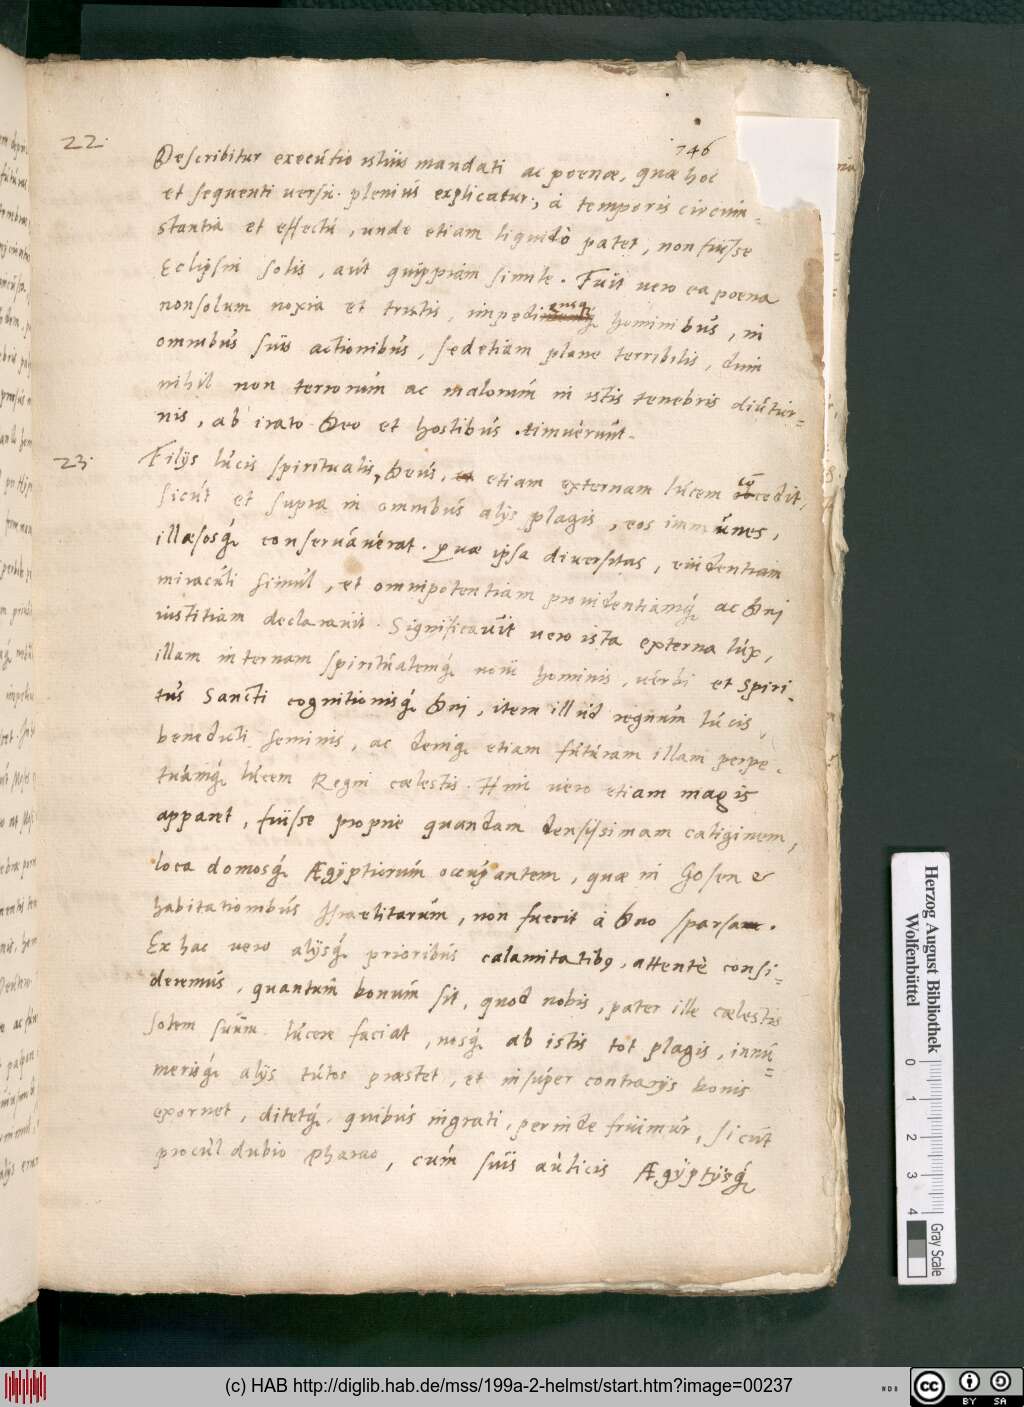 746
22.
Describitur executio istius mandati ac poenæ, quæ hoc
et sequenti versic. plenius explicatur, à temporis circum=
stantia et effectu, unde etiam liquidò patet, non fuisse
Eclipsin solis, aut quippiam simile. Fuit vero ea poena
nonsolum noxia et tristis, impediensq́ hominibus, in
omnibus suis actionibus, sedetiam plane terribilis, dum
nihil non terrorum ac malorum in istis tenebris diutur=
nis, ab irato Deo et hostibus timuerunt.
23.
Filijs lucis spiritualis, Deus, etiam externam lucem cōcedit,
sicut et supra in omnibus alijs plagis, eos immunes,
illæsosq́ conservaverat. Quæ ipsa diversitas, evidentiam
miraculi simul, et omnipotentiam providentiamq́ ac Dnj
iustitiam declaravit. Significavit vero ista externa lux,
illam internam spiritualemq́ novi hominis, verbi et Spiri-
tus Sancti cognitionisq́ Dnj, item illud regnum lucis,
benedicti seminis, ac deniq́ etiam futuram illam perpe-
tuamq́ lucem Regni cælestis. Hinc vero etiam magis
apparet, fuisse proprie quandam densissimam caliginem,
loca domosq́ Ægyptiorum occupantem, quæ in Gosen &
habitationibus Israelitarum, non fuerit à Dno sparsa.
Ex hac vero alijsq́ prioribus calamitatibꝰ, attentè consi=
deremus, quantum bonum sit, quod nobis, pater ille cælestis
solem suum lucere faciat, nosq́ ab istis tot plagis, innu=
merisq́ alijs tutos præstet, et insuper contrarijs bonis
exornet, ditetq́, quibus ingrati, perinde fruimur, sicut
procul dubio Pharao, cum suis aulicis Ægyptijsq́
Herzog August Bibliothek
Wolfenbüttel
0 1 2 3 4
Gray Scale
(c) HAB http://diglib.hab.de/mss/199a-2-helmst/start.htm?image=00237
cc BY SA